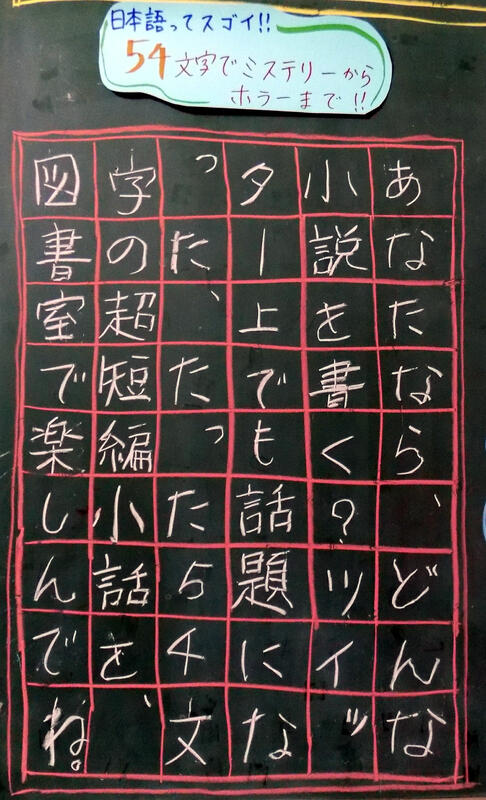 日本語ってスゴイ!!
54文字でミステリーから
ホラーまで!!
あなたなら、どんな
小説を書く?ツイッ
ター上でも話題にな
った、たった54文
字の超短編小話を、
図書室で楽しんでね。